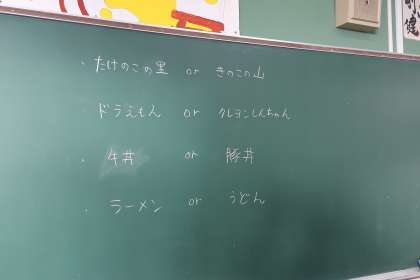 ・たけのこの里 or きのこの山
ドラえもん or クレヨンしんちゃん
・牛丼 or 豚丼
・ラーメン or うどん